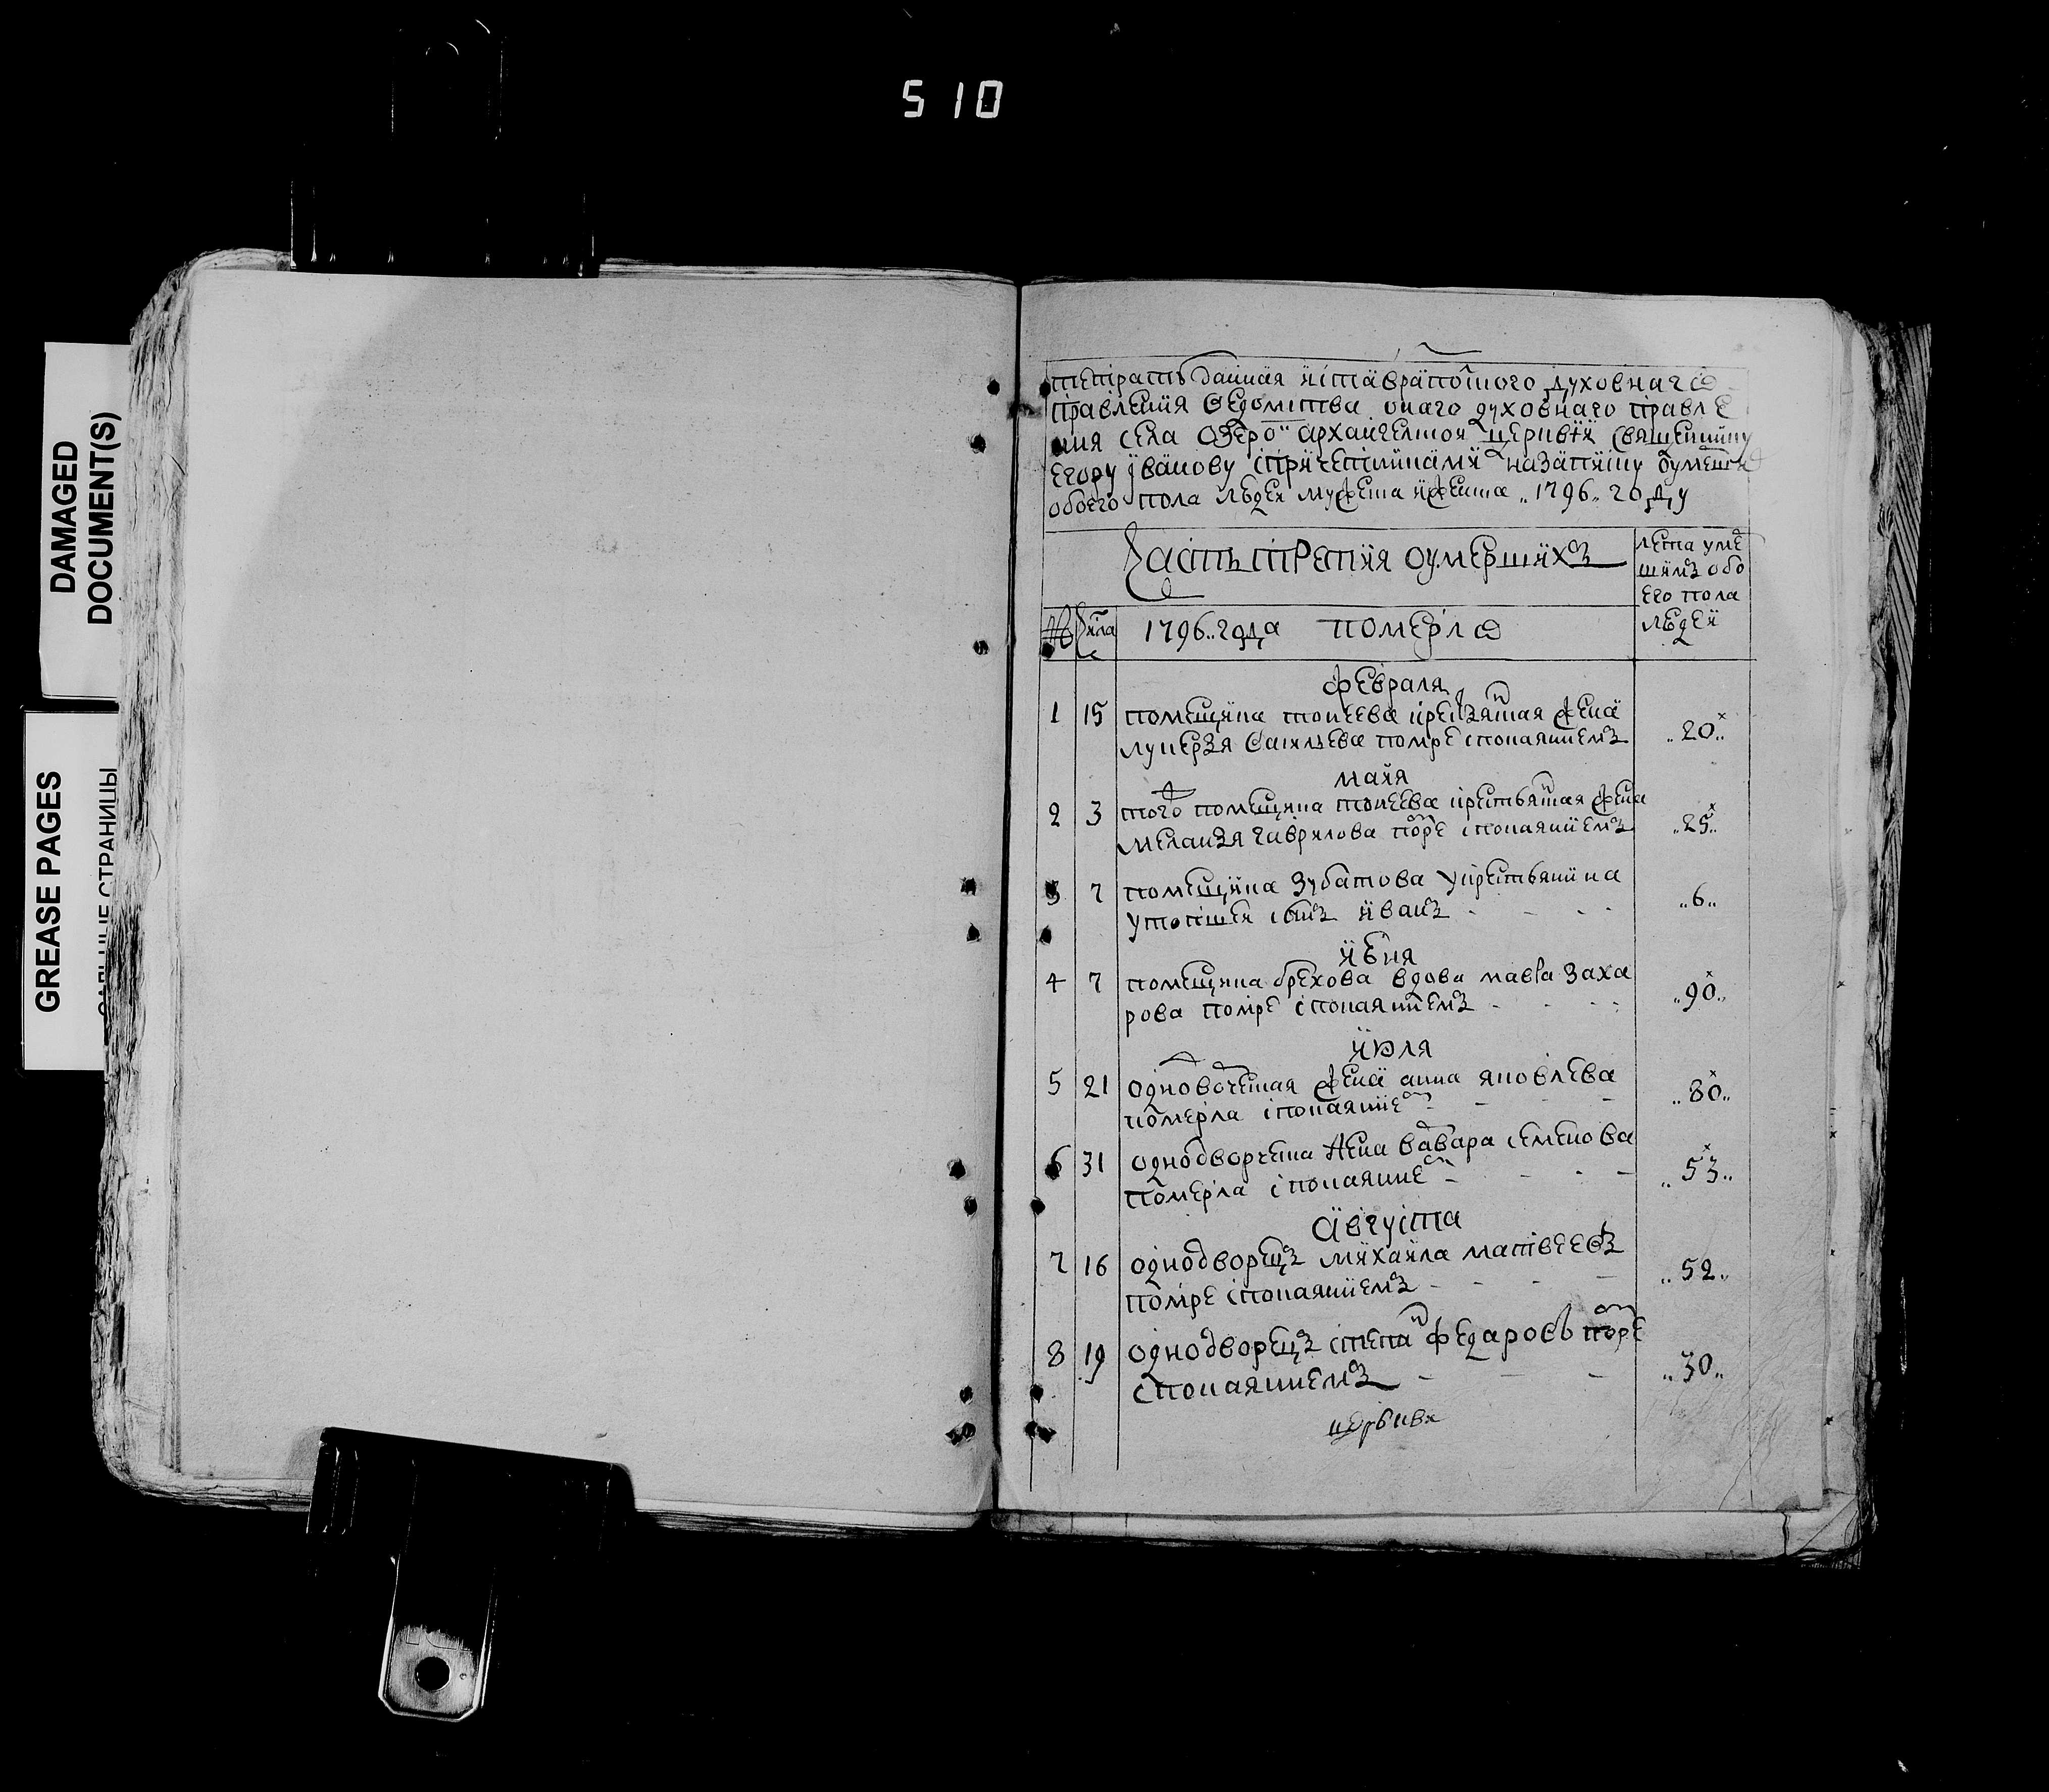 510
DAMAGED
DOCUMENT(S)
GREASE PAGES
САЛЬНЫЕ СТРАНИЦЫ
тетрать данная духовнаго
правления ведомства онаго духовнаго правле
ния села озеро архангелкои церквѣи священнику
егору иванову спричетниками назаписку умеш
обоего пола людеи муска иженска „1796„ году
Часть третия оумершихъ
лета уме
шимъ обо
его пола
людеи
№ числа 1796„ года померло
февраля
1 15 помещика крестянская жена
лукерия васильева помре спокаяниемъ „20„
маия
2 3 того помещика крестьянская жена
мелания гаврилова помре спокаяниемъ „25„
3 7 помещика зубатова укрестьянина
утопшеи сынъ иванъ „6„
июня
4 7 помещика брехова вдова мавра заха
рова помре спокаяниемъ „90„
июля
5 21 одноворческая жена анна яковлева
померла спокаяние „80„
6 31 однодворческа жена варвара семенова
померла спокаяние „53„
августа
7 16 однодворецъ михаила матвеевъ
помре спокаяниемъ „52„
8 19 однодворецъ степан федаровъ помре
спокаяниемъ „30„
церькви